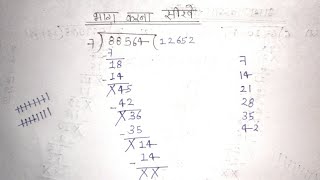 भाग करना सीखें
7)88564(12652
7
18
-14
X45
-42
X36
-35
X14
-14
XX
7
14
21
28
35
42